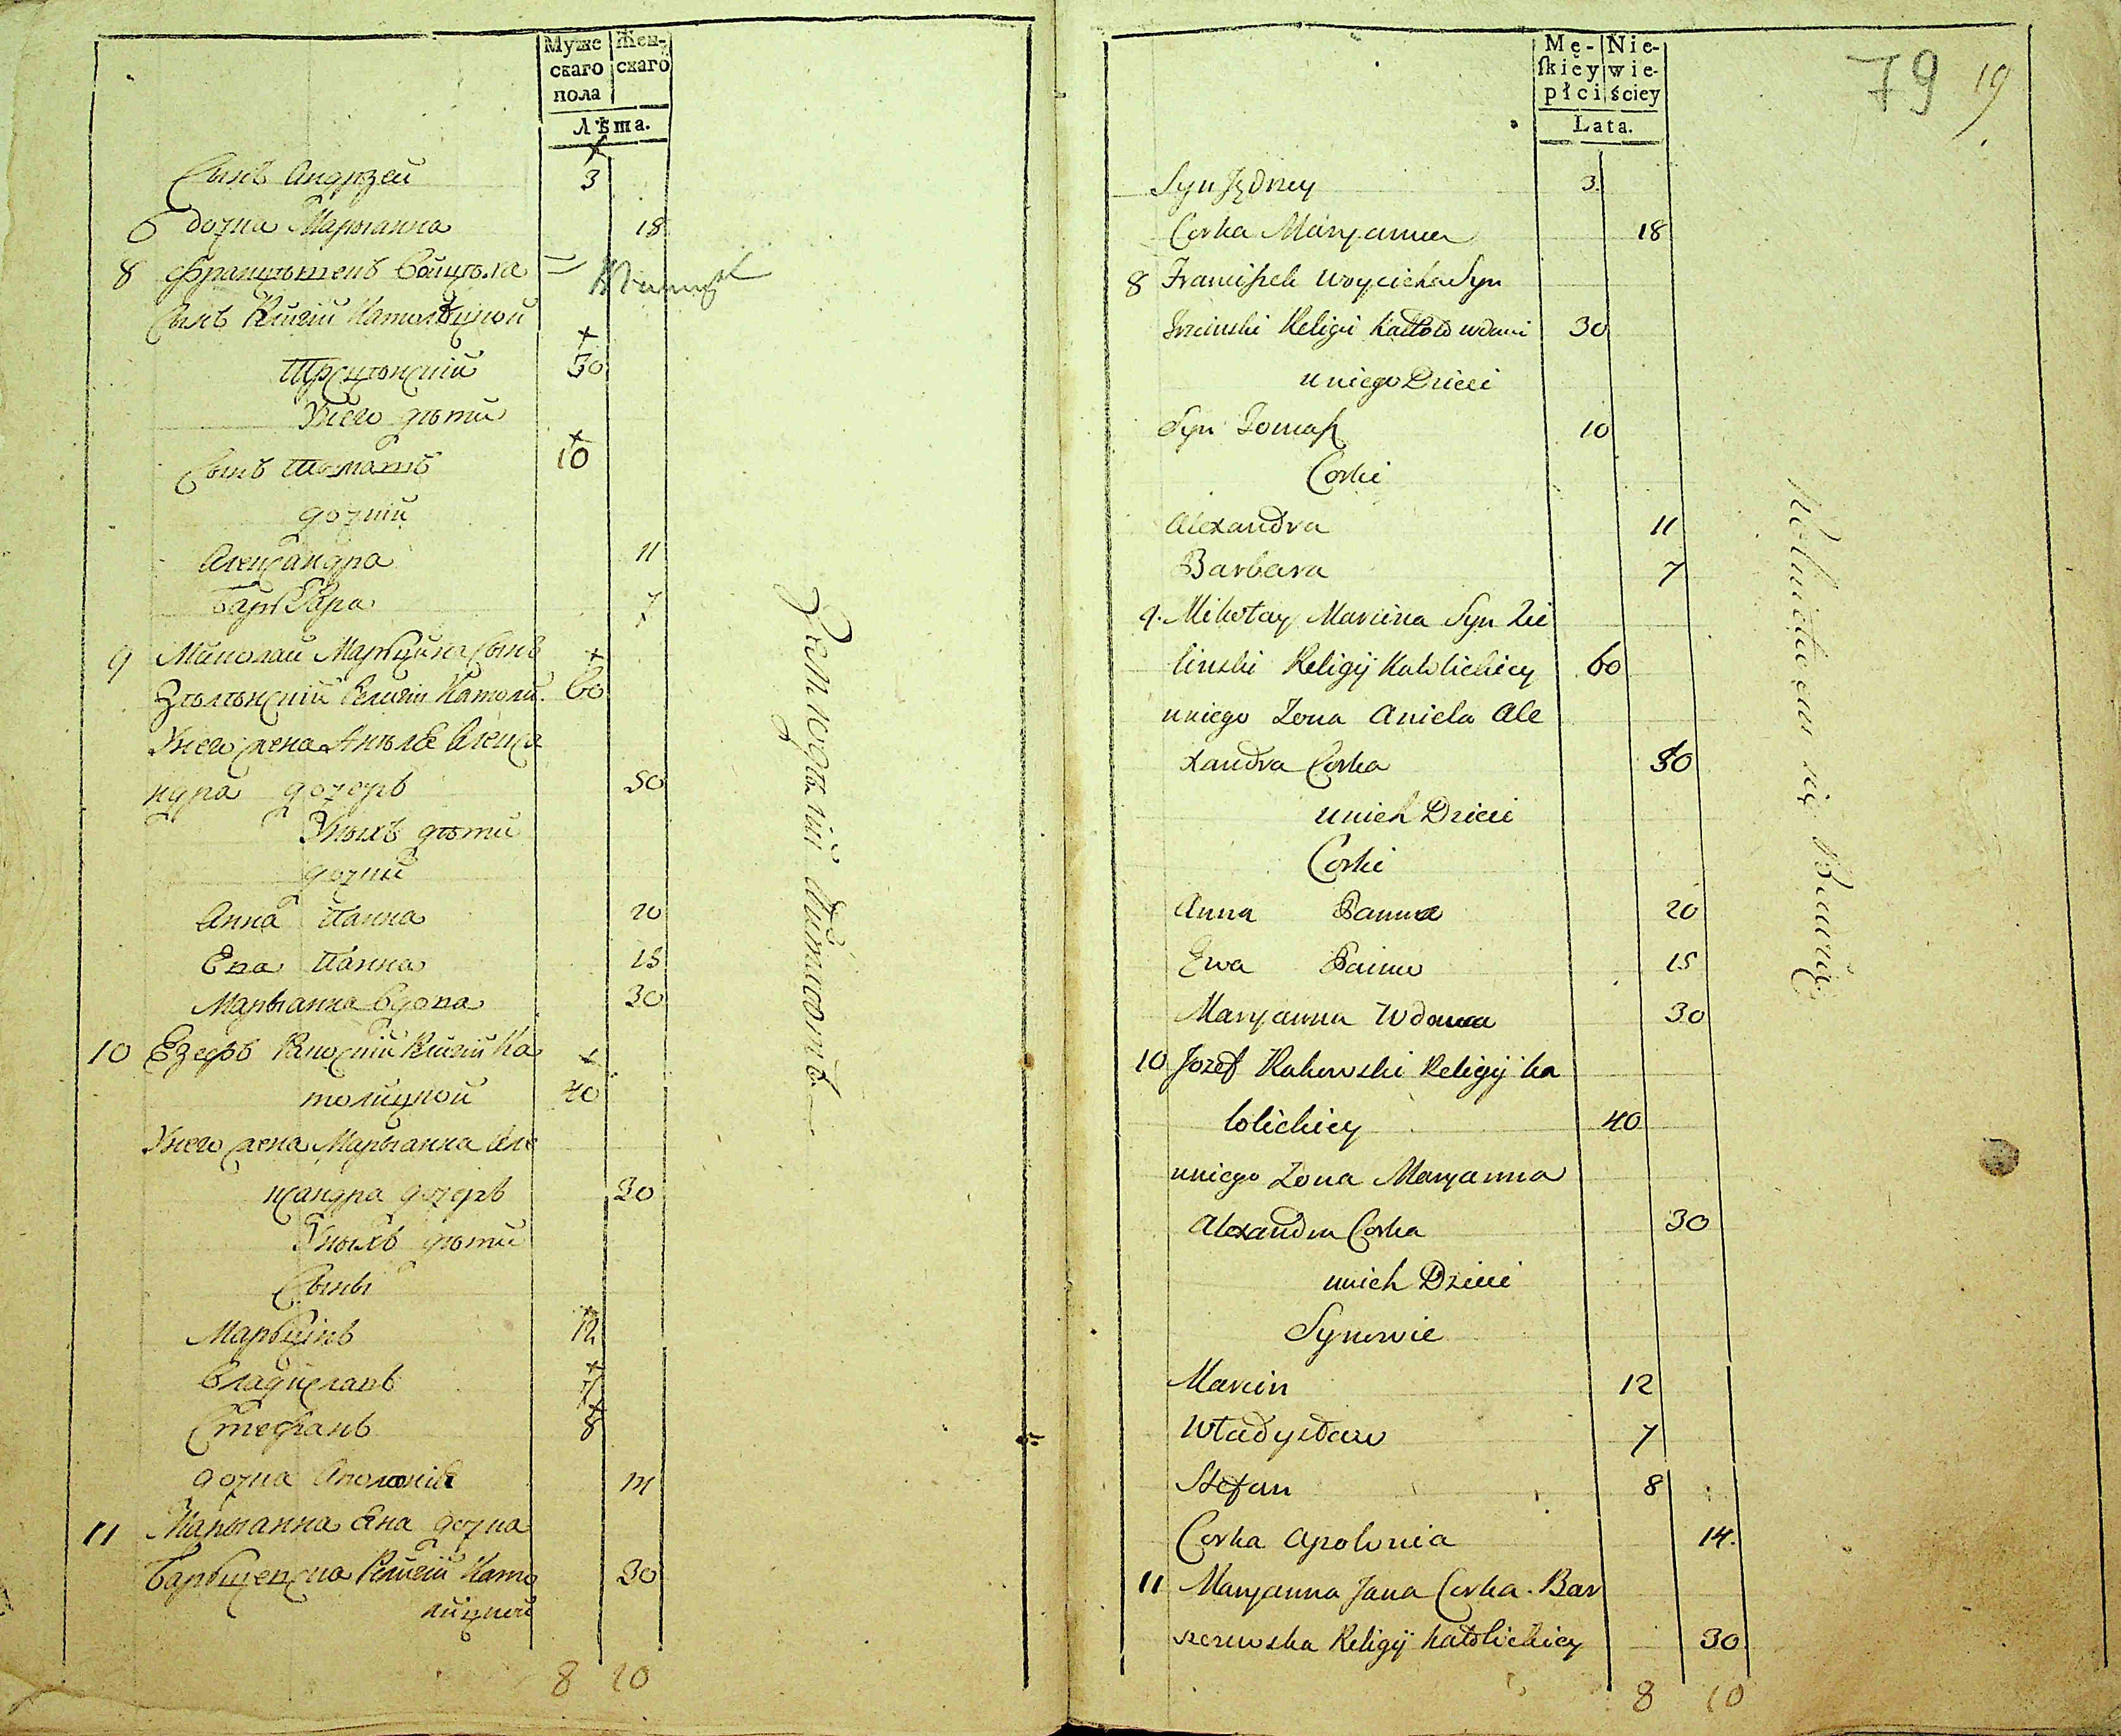 Муже Жен-
скаго скаго
пола
Лѣта.
Сынъ Андрзей 3
6 дочка Марыанна 18
8 Францышекъ Войцѣха
Сынъ Религіи Католицкой
Трсцѣнскій 30
Унего дѣти
Сынъ Томашъ 10
дочки
Александра 11
Барбара 7
9 Миколай Марцина Сынъ
Зѣлѣнскій Религіи Католи. 60
Унего жена Анѣля Алекса
ндра дочерь 50
Унихъ дѣти
дочки
Анна Панна 20
Ева Панна 15
Марыанна Вдова 30
10 Езефъ Раковскій Религіи Ка
толицкой 40
Унего жена Марыанна Але
ксандра дочерь 30
Унихъ дѣти
Сыны
Марцинъ 12
Владиславъ 7
Стефанъ 8
дочка Аполонія 14
11 Марыанна Яна дочка
Барщевска Религіи Като 30
лицкой
8 10
Mę- Nie-
ſkiéy wie-
płci ściey
Lata.
79 19
Syn Jędrzey 3
Corka Maryanna 18
8 Franciszek Woyciecha Syn
Trscinski Religii Katol: wdowi 30
u niego Dzieci
Syn Tomasz 10
Corki
Alexandra 11
Barbara 7
9. Mikołay Marcina Syn Zie
linski Religij Katolickiey 60
u niego Zona Aniela Ale
xandra Corka 50
u nich Dzieci
Corki
Anna Panna 20
Ewa Panna 15
Maryanna Wdowa 30
10 Jozef Rakowski Religij Ka
tolickiey 40
u niego Zona Maryanna
Alexandra Corka 30
u nich Dzieci
Synowie
Marcin 12
Władysław 7
Stefan 8
Corka Apolonia 14.
11 Maryanna Jana Corka Bar
szczewska Religij Katolickiey 30
8 10